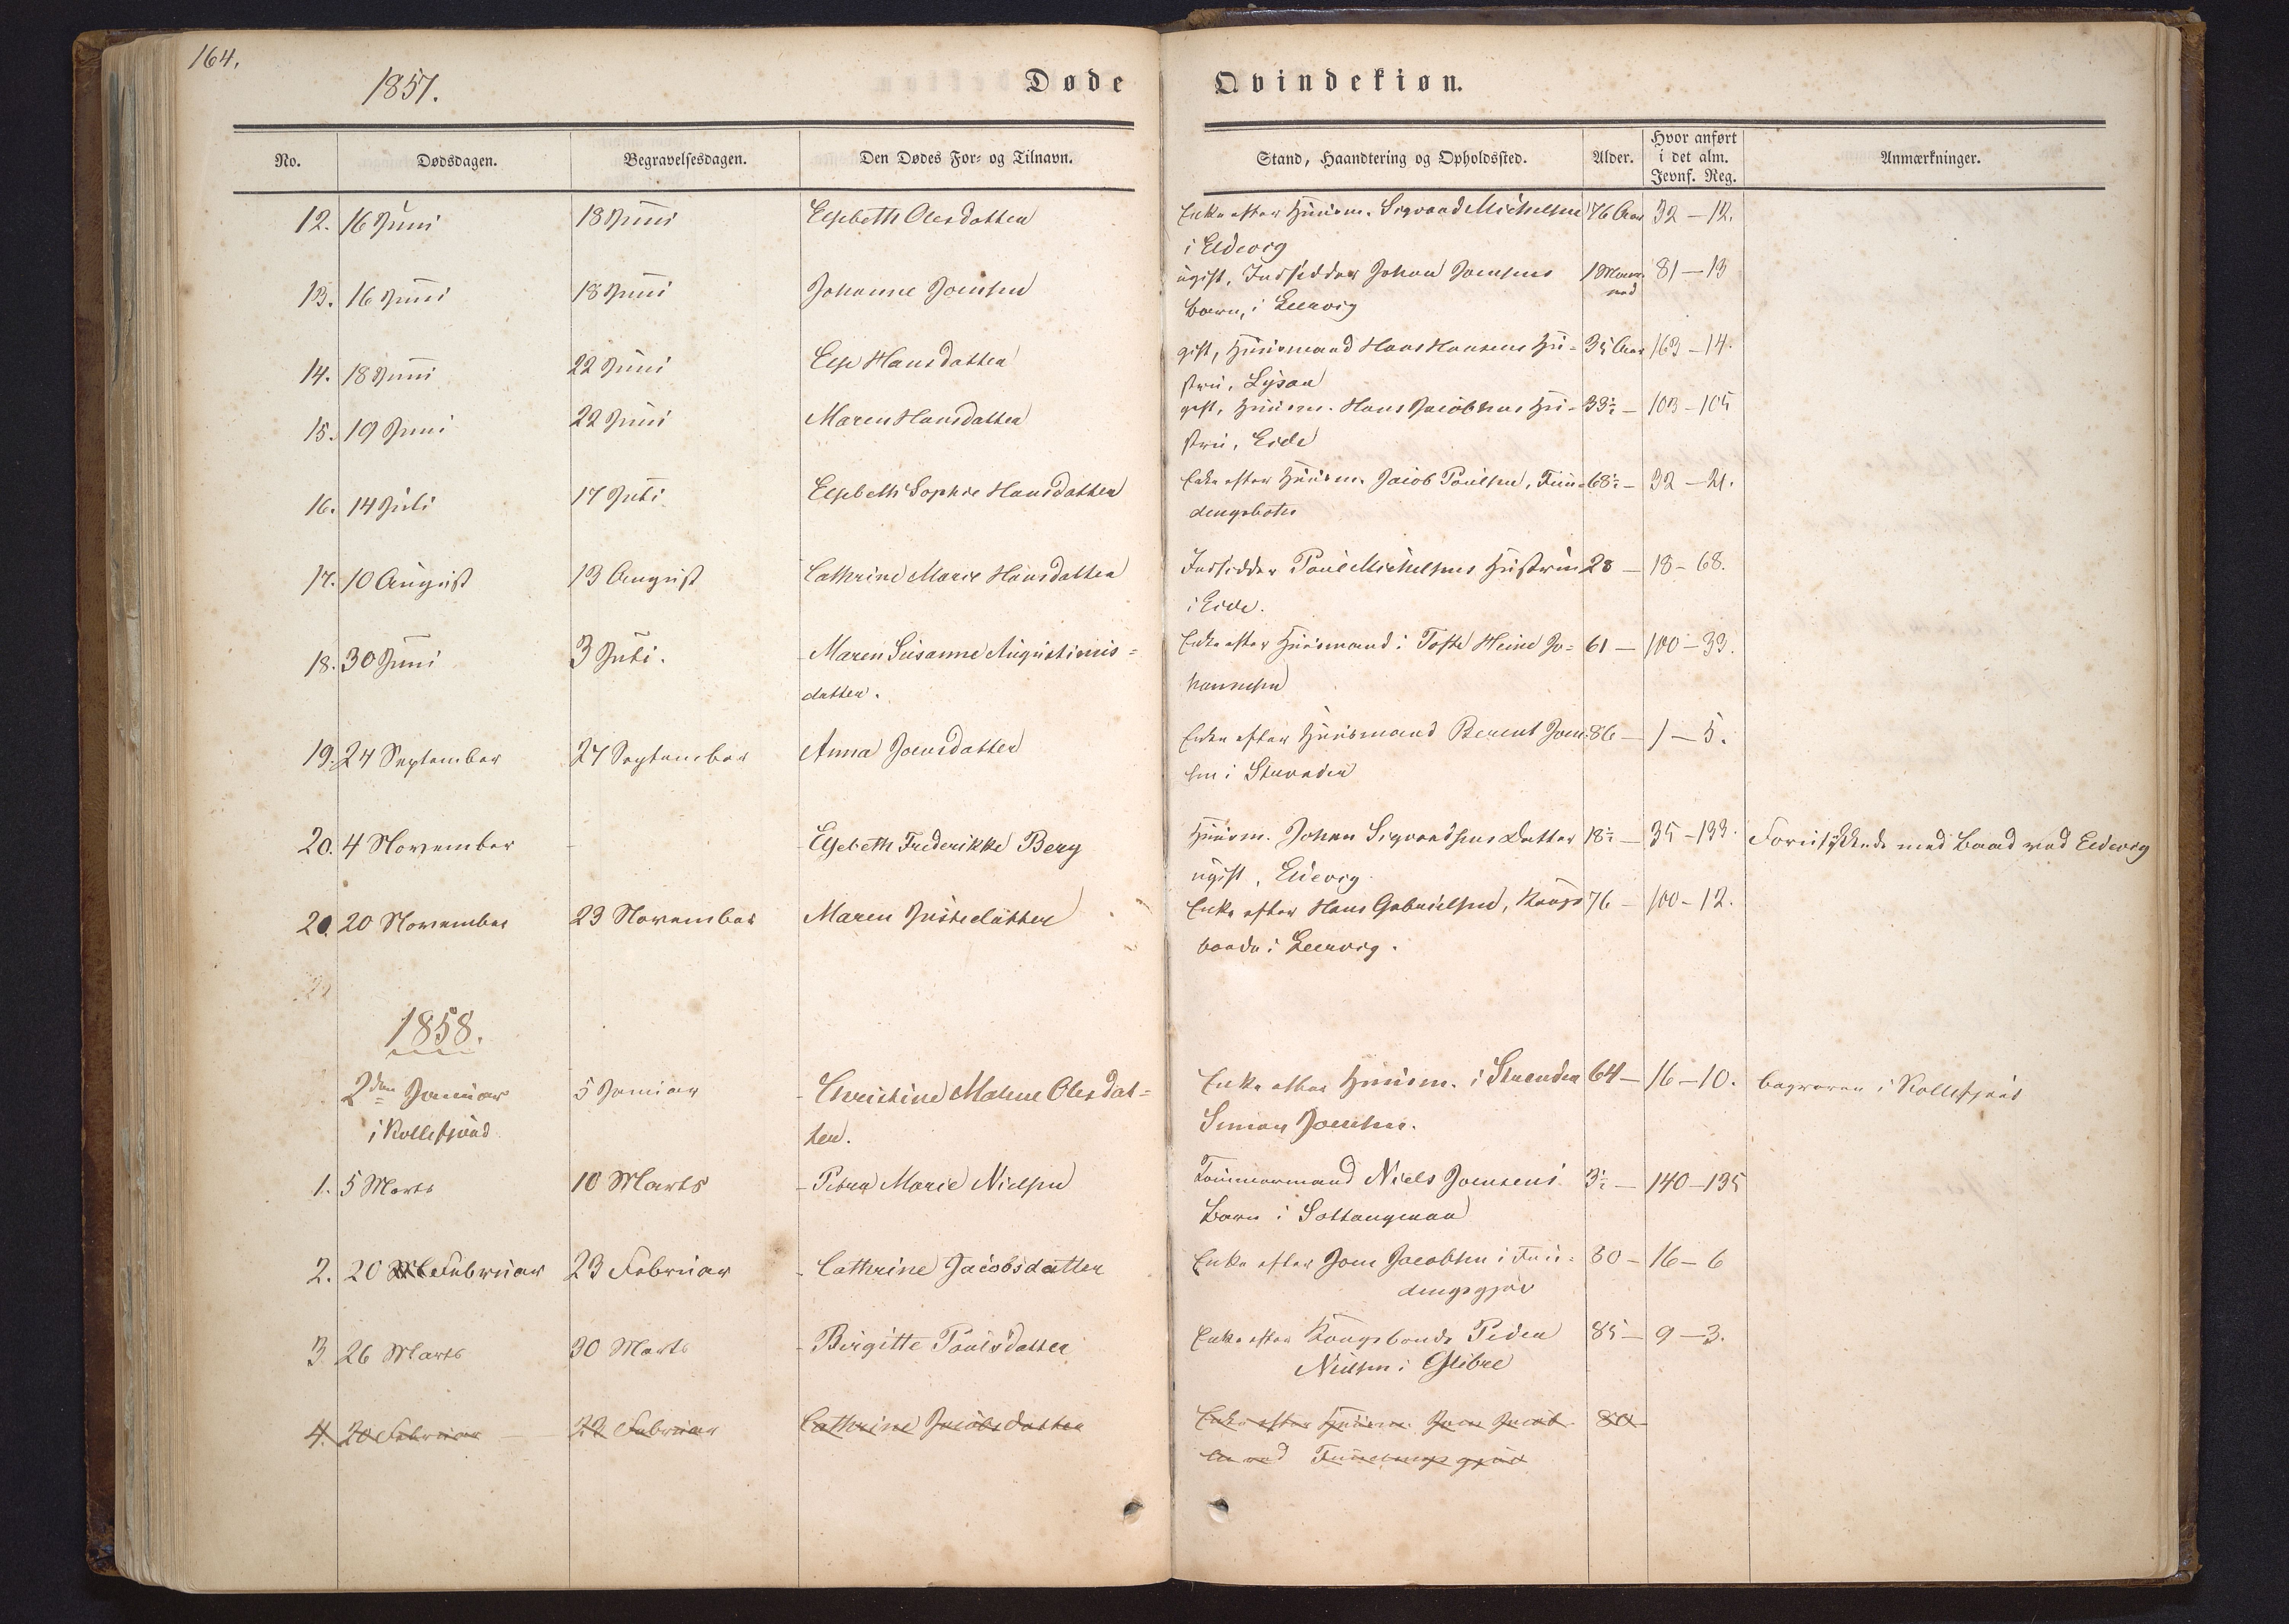 164.
1857.
Døde Qvindekiøn.
No. Dødsdagen. Begravelsesdagen. Den Dødes For- og Tilnavn. Stand, Haandtering og Opholdssted. Alder. Hvor anført i det alm. Jevnf. Reg. Anmærkninger.
12. 16 Juni 18 Juni Elsebeth Olesdatter Enke efter Huusm. Sigvard Michelsen 76 Aar 32 - 12.
i Eldevig
13. 16 Juni 18 Juni Johanne Joensen ugift, Indsidder Johan Joensens 1 Maa- 81 - 13
Barn, i Leervig ned
14. 18 Juni 22 Juni Else Hansdatter gift, Huusmand Hans Hansens Hu- 35 Aar 163 - 14.
stru,
15. 19 Juni 22 Juni Maren Hansdatter gift, Huusm. Hans Jacobsens Hu- 33½ - 103 - 105
stru, Eide
16. 14 Juli 17 Juli Elsebeth Sophie Hansdatter Enke efter Huusm. Jacob Poulsen, Fun- 68½ - 32 - 21.
dengsbotn
17. 10 August 13 August Cathrine Marie Hansdatter Indsidder Poul Michelsens Hustru 28 - 18 - 68.
i Eide.
18. 30 Juni 3 Juli. Maren Susanne Augustinus- Enke efter Huusmand i Tofte Heine Jo- 61 - 100 - 33.
datter. hannesen
19. 24 September 27 September Anna Joensdatter Enke efter Huusmand Berent Joen- 86 - 1 - 5.
sen i
20. 4 November - Elsebeth Frederikke Berg Huusm. Johan Sigvardsens Datter 18½ - 35 - 133. Forulykkede med Baad ved Eldevig
ugift, Eldevig.
20 November 23 November Maren Justesdatter Enke efter Hans Gabrielsen, Kongs- 76 - 100 - 12.
bonde i Leervig.
1858.
2den Januar 5 Januar Christine Malene Olesdat- Enke efter Huusm. i Strender 64 - 16 - 10. begraven i Kollefjord
i Kollefjord Simon Joensen.
ter.
1. 5 Marts 10 Marts Petra Marie Nielsen Tømmermand Niels Joensens 3½ - 140 - 135
Barn i Saltangeraa
2. 20 Februar 23 Februar Cathrine Jacobsdatter Enke efter Joen Jacobsen i Fun- 80 - 16 - 6
dengsgjov
3. 26 Marts 30 Marts Birgitte Poulsdatter Enke efter Kongsbonde Peder 85 - 9 - 3.
Nielsen i Glibre
4. 20 Februar 22 Februar Cathrine Jacobsdatter Enke efter Huusm. Joen Jacob- 80